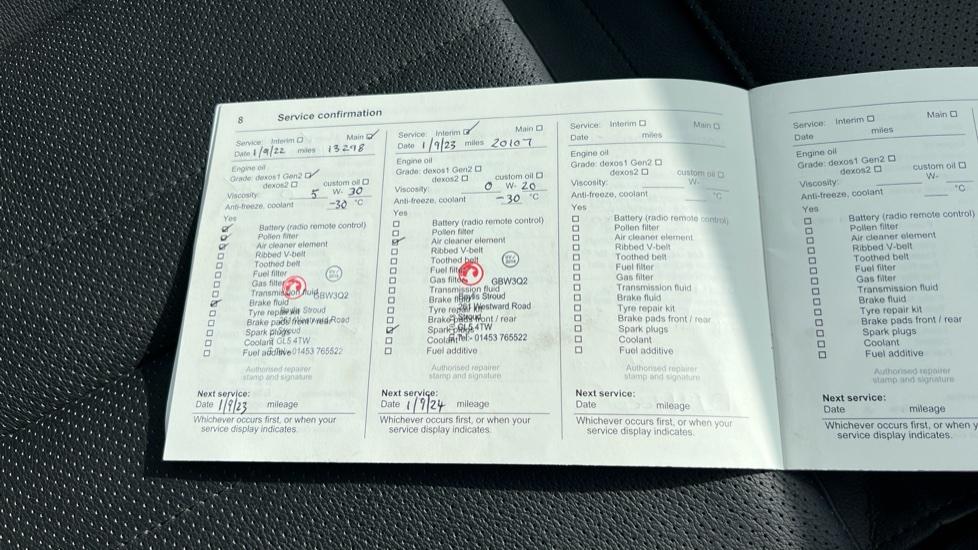 8 Service confirmation
Service: Interim ☐ Main ☑
Date 1/9/22 miles 13298
Engine oil
Grade: dexos1 Gen2 ☑
dexos2 ☐ custom oil ☐
Viscosity: 5 W- 30
Anti-freeze, coolant -30 °C
Yes
☑ Battery (radio remote control)
☑ Pollen filter
☑ Air cleaner element
☐ Ribbed V-belt
☐ Toothed belt
☐ Fuel filter
☐ Gas filter
☐ Transmission fluid
GBW3Q2
☑ Brake fluid
☐ Tyre repair kit
Stroud
☐ Brake pads front / rear
Road
☐ Spark plugs
☐ Coolant
GL5 4TW
☐ Fuel additive
01453 765522
Authorised repairer
stamp and signature
Next service:
Date 1/9/23 mileage
Whichever occurs first, or when your
service display indicates.
Service: Interim ☑ Main ☐
Date 1/9/23 miles 20107
Engine oil
Grade: dexos1 Gen2 ☐
dexos2 ☐ custom oil ☐
Viscosity: 0 W- 20
Anti-freeze, coolant -30 °C
Yes
☐ Battery (radio remote control)
☐ Pollen filter
☑ Air cleaner element
☐ Ribbed V-belt
☐ Toothed belt
☐ Fuel filter
☐ Gas filter
GBW3Q2
☐ Transmission fluid
☐ Brake fluid
Stroud
☐ Tyre repair kit
Westward Road
☐ Brake pads front / rear
Stroud
☑ Spark plugs
GL5 4TW
☐ Coolant
Tel:- 01453 765522
☐ Fuel additive
Authorised repairer
stamp and signature
Next service:
Date 1/9/24 mileage
Whichever occurs first, or when your
service display indicates.
Service: Interim ☐ Main ☐
Date miles
Engine oil
Grade: dexos1 Gen2 ☐
dexos2 ☐ custom oil ☐
Viscosity: W-
Anti-freeze, coolant °C
Yes
☐ Battery (radio remote control)
☐ Pollen filter
☐ Air cleaner element
☐ Ribbed V-belt
☐ Toothed belt
☐ Fuel filter
☐ Gas filter
☐ Transmission fluid
☐ Brake fluid
☐ Tyre repair kit
☐ Brake pads front / rear
☐ Spark plugs
☐ Coolant
☐ Fuel additive
Authorised repairer
stamp and signature
Next service:
Date mileage
Whichever occurs first, or when your
service display indicates.
Service: Interim ☐ Main ☐
Date miles
Engine oil
Grade: dexos1 Gen2 ☐
dexos2 ☐ custom oil ☐
Viscosity: W-
Anti-freeze, coolant °C
Yes
☐ Battery (radio remote control)
☐ Pollen filter
☐ Air cleaner element
☐ Ribbed V-belt
☐ Toothed belt
☐ Fuel filter
☐ Gas filter
☐ Transmission fluid
☐ Brake fluid
☐ Tyre repair kit
☐ Brake pads front / rear
☐ Spark plugs
☐ Coolant
☐ Fuel additive
Authorised repairer
stamp and signature
Next service:
Date mileage
Whichever occurs first, or when
service display indicates.